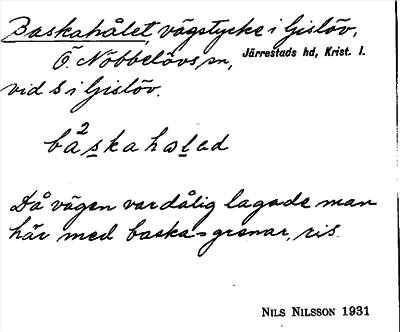 Baskahålet, vägstycke i Gislöv,
Ö. Nöbbelövs sn, Järrestads hd, Krist. l.
vid 8 i Gislöv.
bå2skahalad
Då vägen var dålig lagade man
här med baska-grenar, ris.
NILS NILSSON 1931